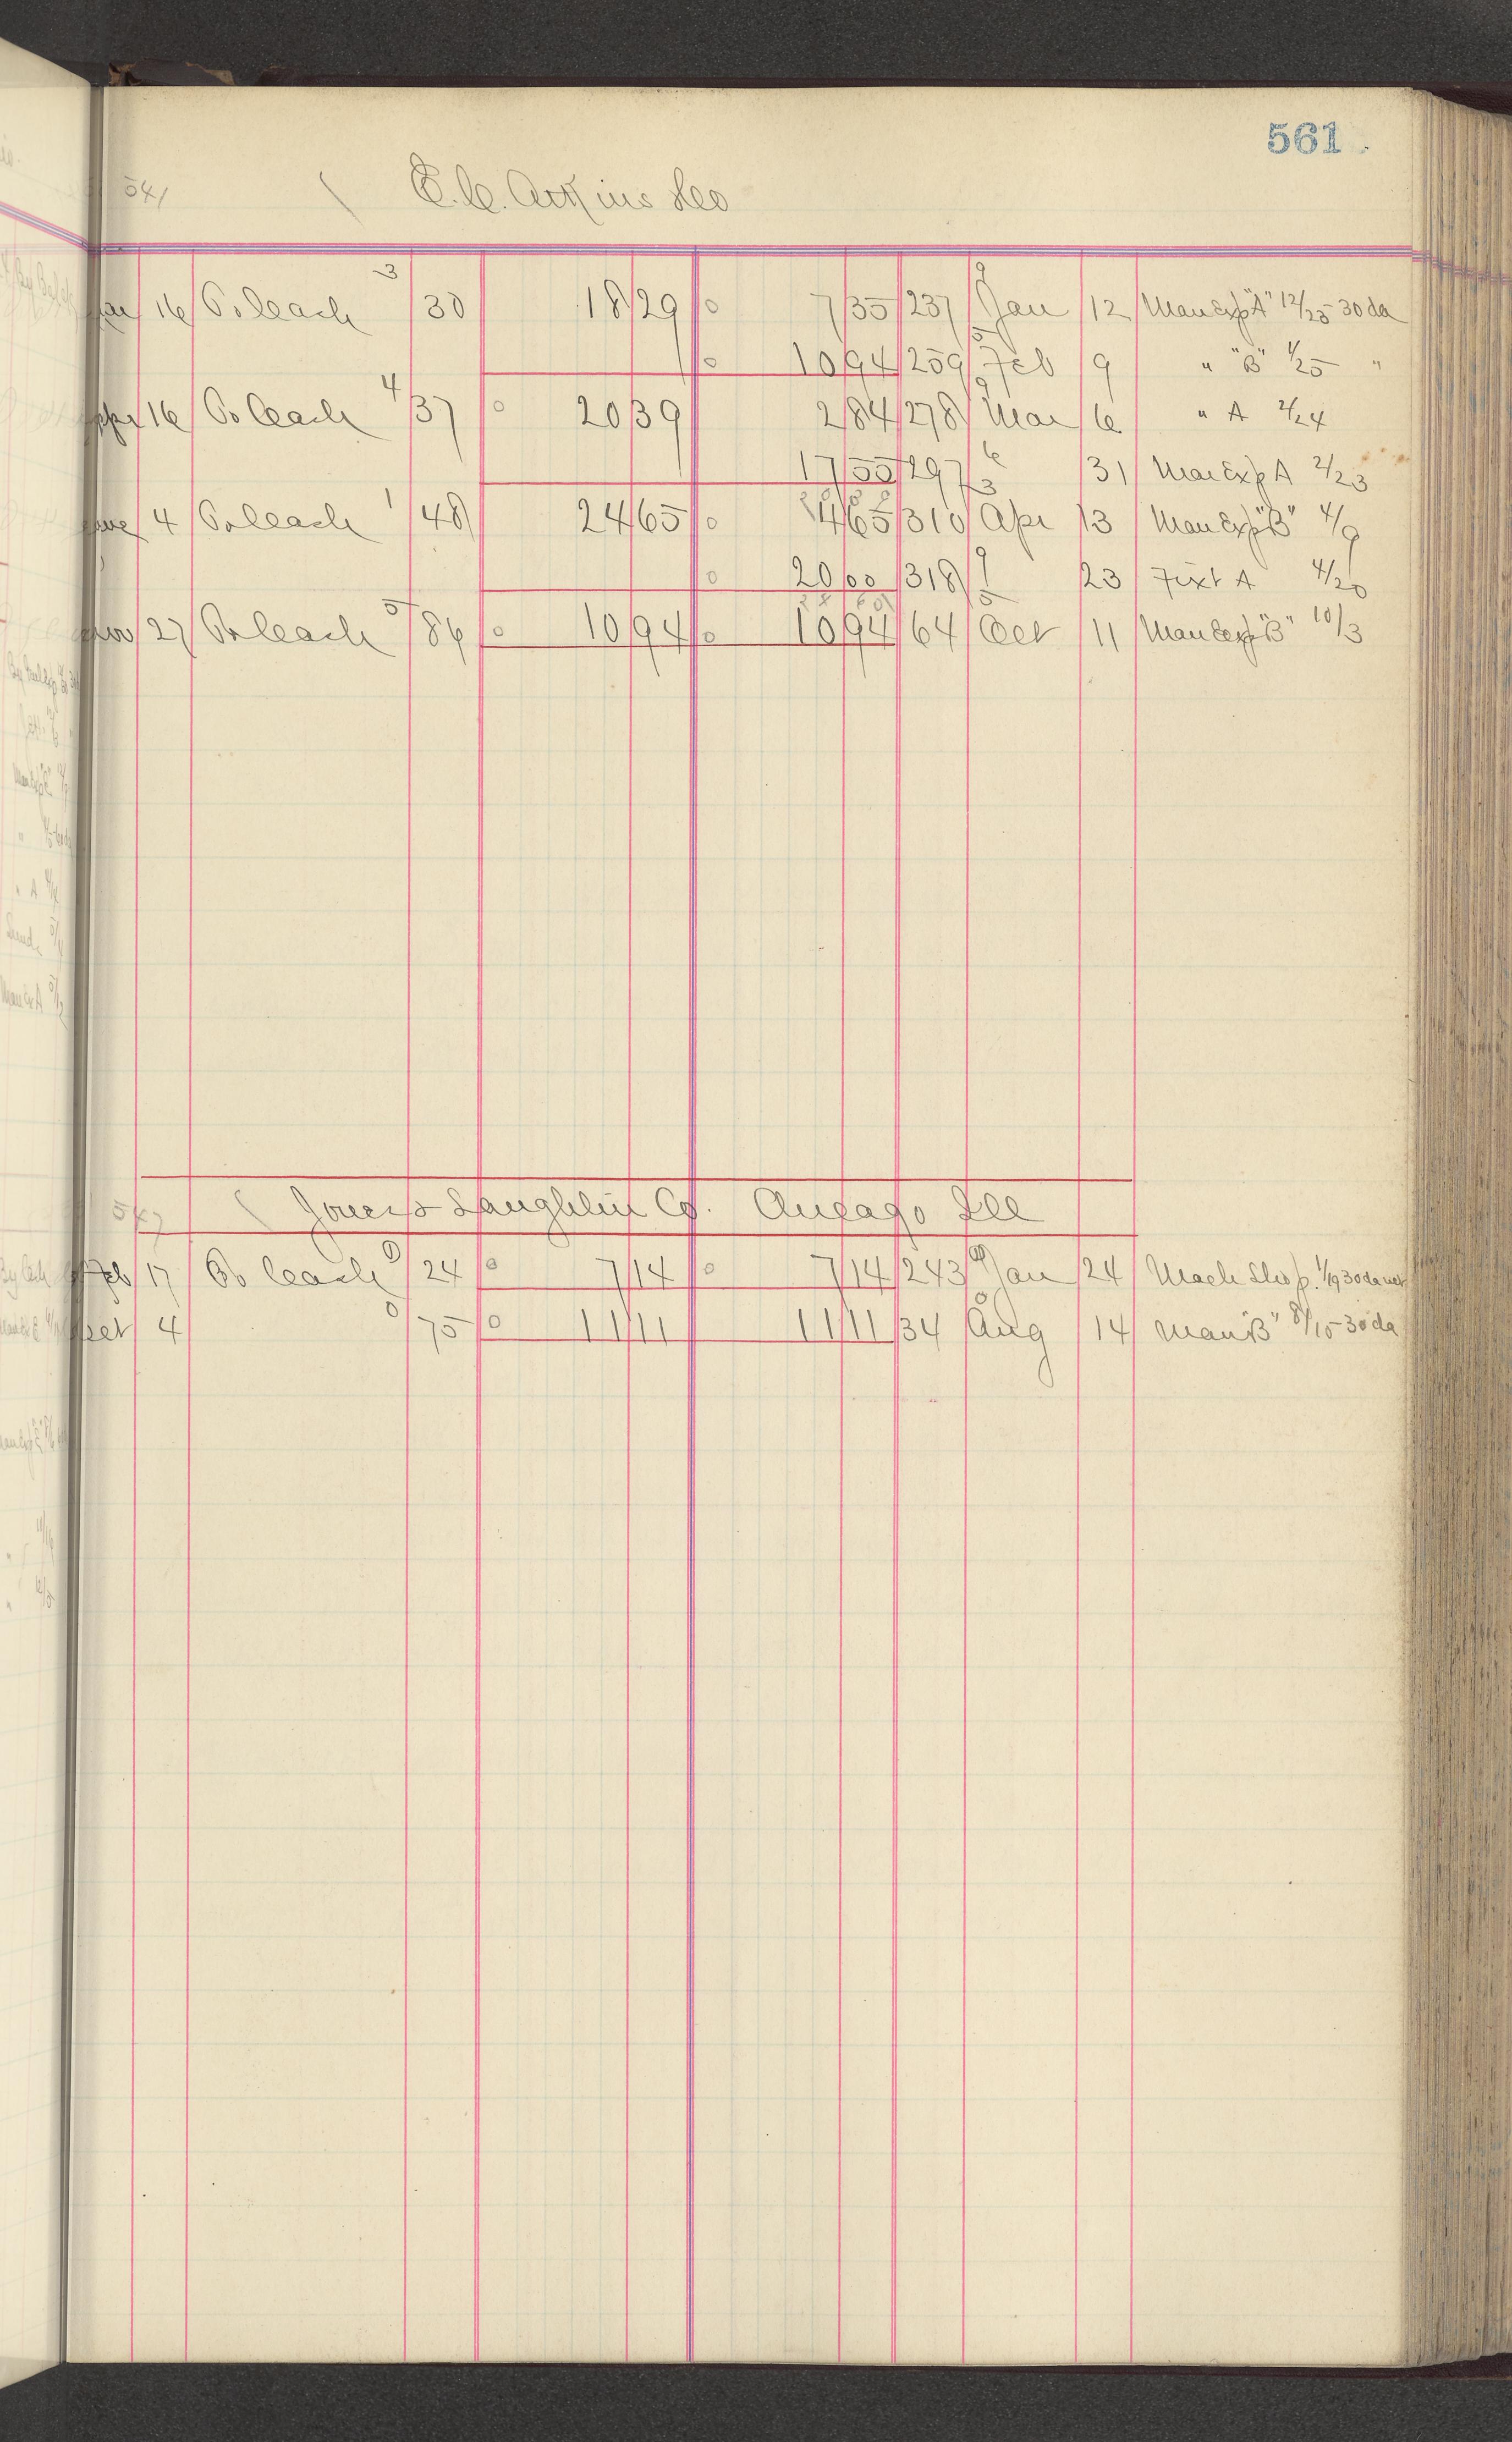 561
541 E.C. Atkins &Co
Mar 16 To Cash 3 30 18 29 7 35 237 9 Jan 12 Man Exp "A" 12/25 30 da
10 94 259 5 Feb 9 " "B" 1/25 "
Apr 16 To Cash 4 37 20 39 2 84 278 9 Mar 6 " A 2/24
17 55 297 6 31 Man Exp A 2/23
June 4 To Cash 1 48 24 65 4 65 310 3 Apr 13 Man Exp "B" 4/9
20 00 318 9 23 Fixt A 4/20
Nov 27 To Cash 5 86 10 94 10 94 64 5 Oct 11 Man Exp "B" 10/3
547 Jones & Laughlin Co. Chicago Ill
Feb 17 To Cash 24 7 14 7 14 243 Jan 24 Mach Shop. 1/19 30 da net
Oct 4 0 75 11 11 11 11 34 0 Aug 14 Man "B" 8/15 - 30 da